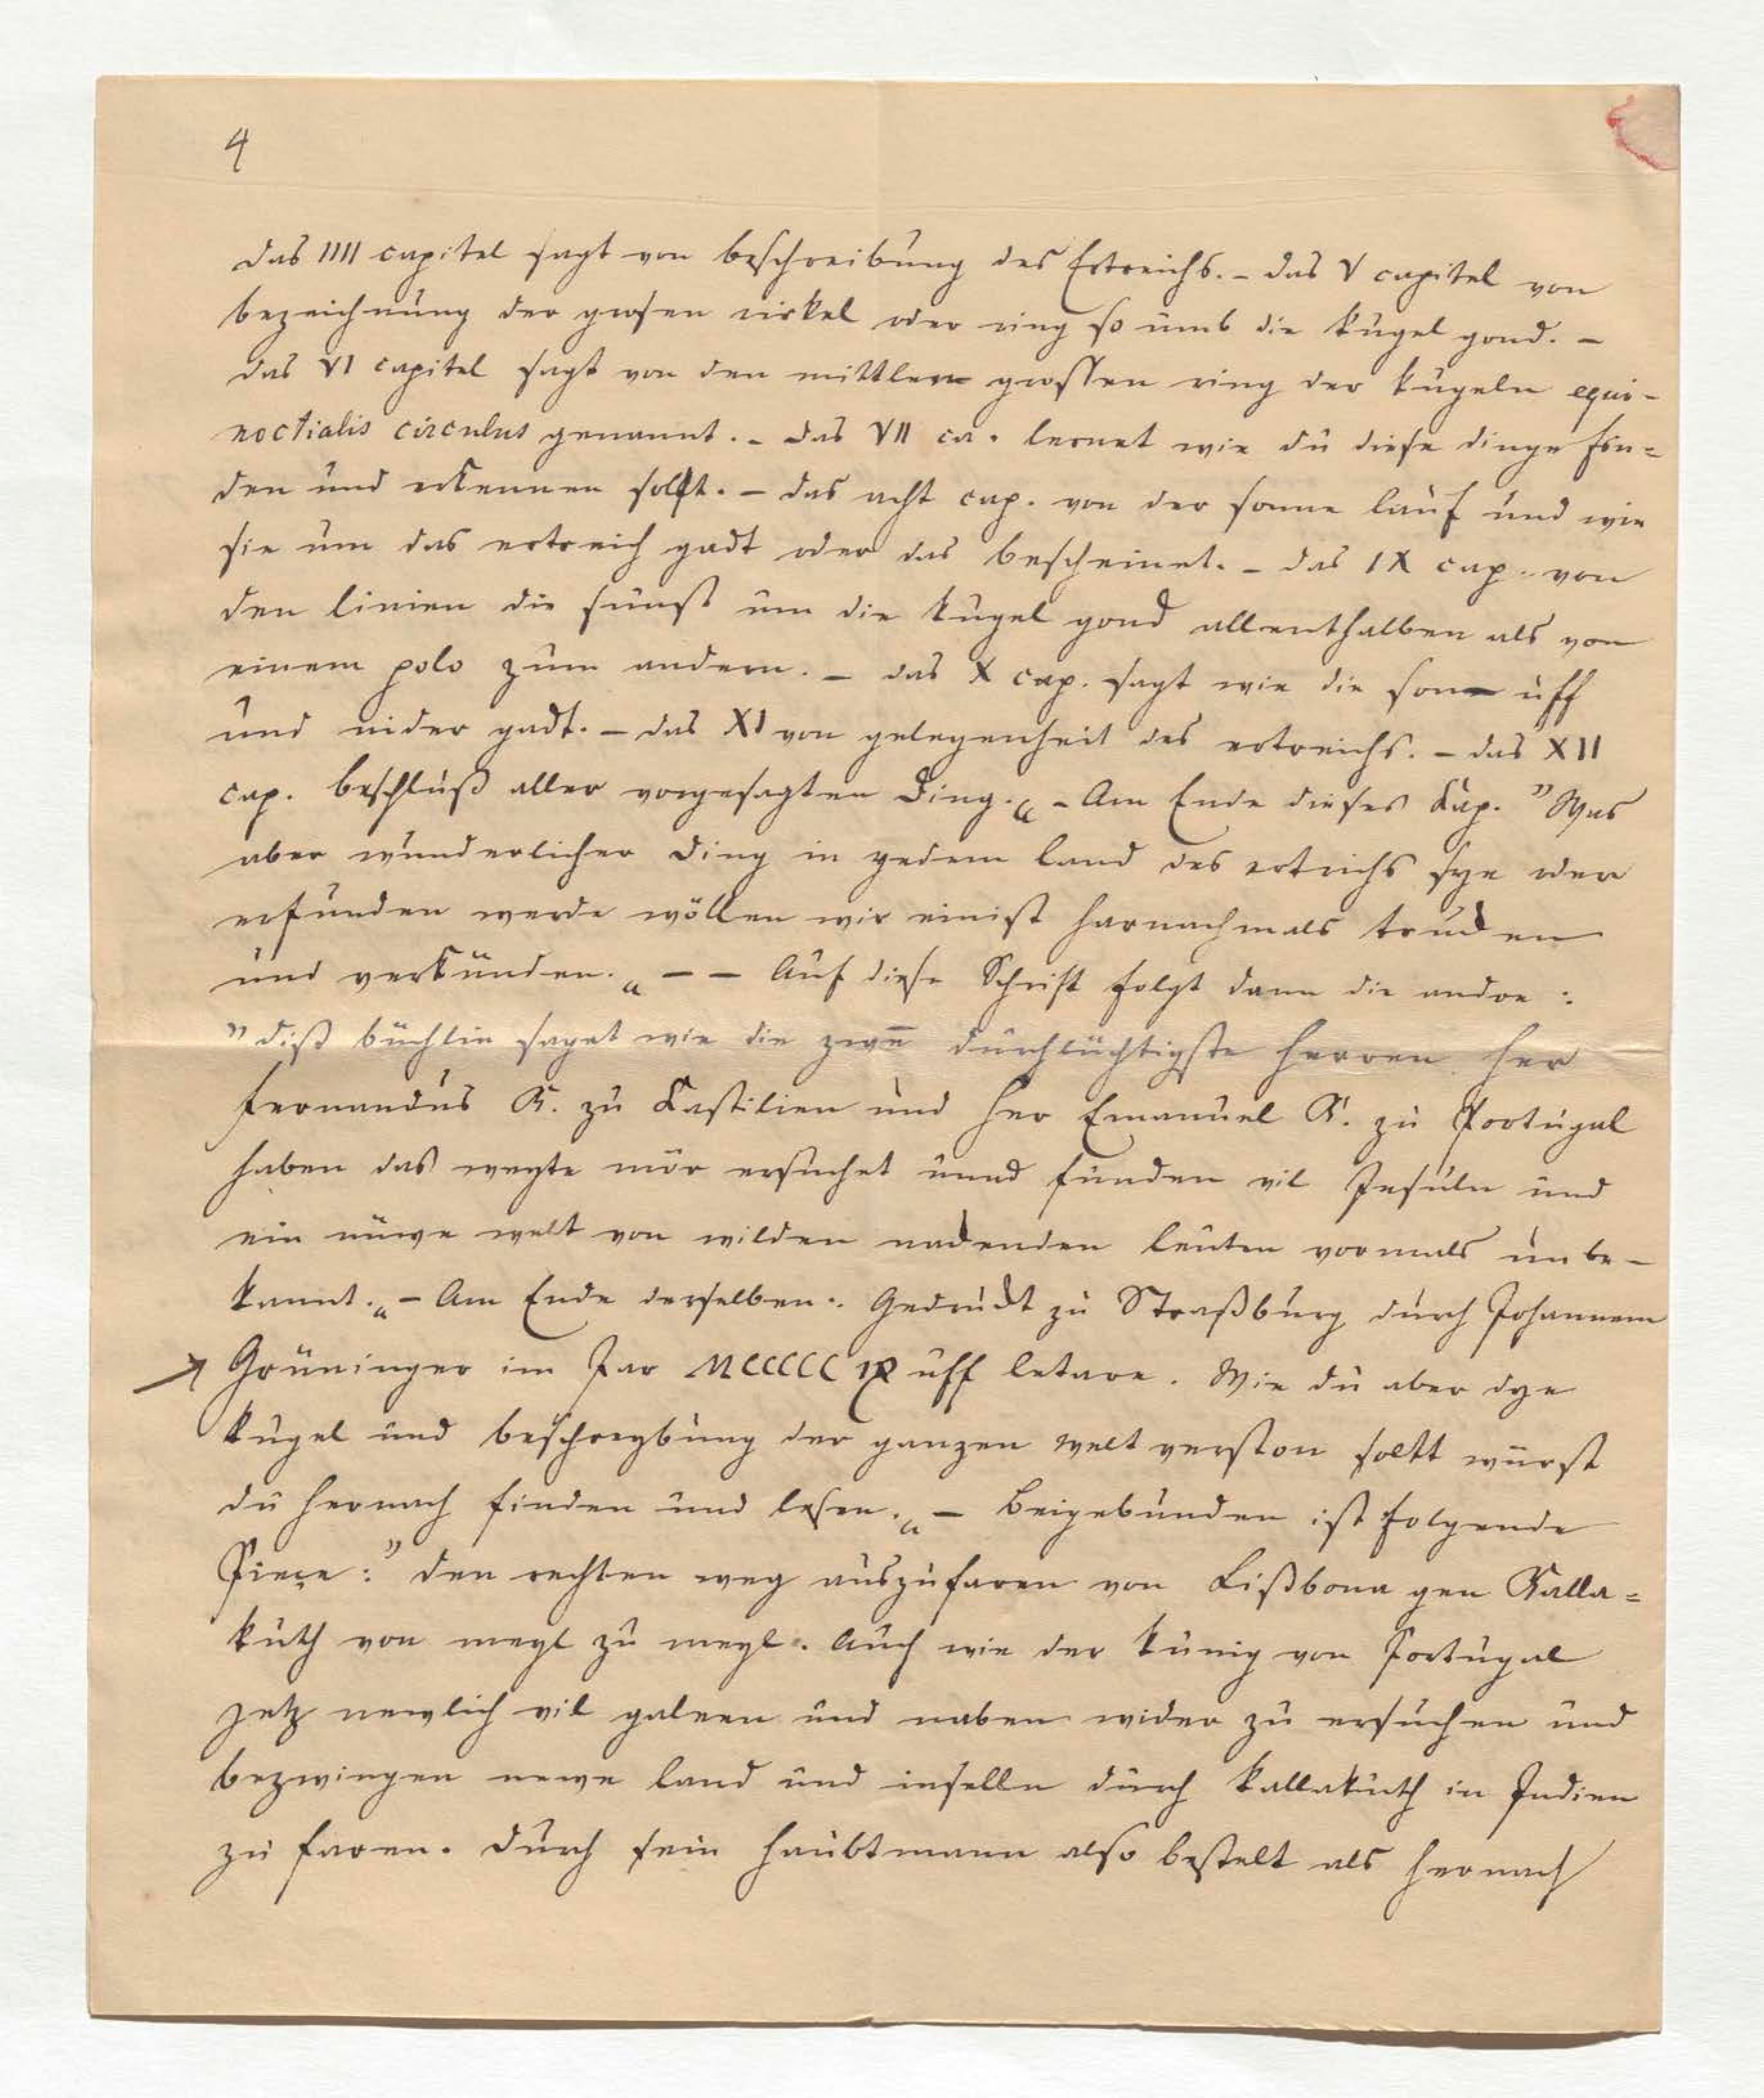 4
das IIII capitel sagt von beschreibung des Ertreichs. – das V capitel von
bezeichnung der grosen cirkel oder ring so umb die kugel gond. –
das VI capitel sagt von den mittlern grossen ring der kugeln equi-
noctialis circulus genannt. – das VII ca. lernet wie du diese dinge fin=
den und erkennen sollt. – das acht cap. von der sonne lauf und wie
sie um das ertreich gadt oder das bescheinet. – das IX cap. von
den linien die sunst um die kugel gond allenthalben als von
einem polo zum andern. – das X cap. sagt wie die sonn uff
und nider gadt. – das XI von gelegenheit des ertreichs. – das XII
cap. beschluß aller vorgesagten Ding.“ – Am Ende dieses Kap. ”Was
aber wunderlicher Ding in yedem land des ertrichs sye oder
erfunden werde wöllen wir einist harnachmals trucken
und verkünden.“ – – Auf diese Schrift folgt dann die andre:
”diß büchlin saget wie die zwen̄ durchlüchtigste herren her
Fernandus K. zu Kastilien und her Emanuel K. zu Portugal
haben das weyte mör ersuchet unnd funden vil Insuln und
ein nüwe welt von wilden nackenden leuten vormals unbe-
kannt.“ – Am Ende derselben: Gedruckt zu Straßburg durch Johannem
Grüninger im Jar MCCCCC IX uff letare. Wie du aber dye
kugel und beschreybung der ganzen welt verston soltt würst
du hernach finden und lesen.“ – Beigebunden ist folgende
Pieçe: ”den rechten weg auszufaren von Lißbona gen Kalla=
kuth von meyl zu meyl. Auch wie der kunig von Portugal
yetz newlich vil galeen und naben wider zu ersuchen und
bezwingen newe land und inselln durch kallakuth in Indien
zu faren. durch sein haubtmann also bestelt als hernach